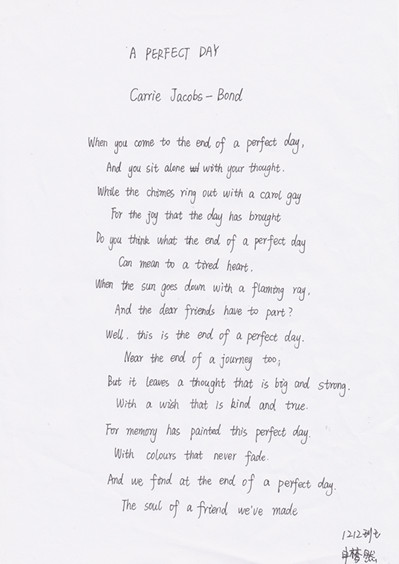 A PERFECT DAY
Carrie Jacobs - Bond
When you come to the end of a perfect day,
And you sit alone with your thought.
While the chimes ring out with a carol gay
For the joy that the day has brought
Do you think what the end of a perfect day
Can mean to a tired heart.
When the sun goes down with a flaming ray,
And the dear friends have to part?
Well, this is the end of a perfect day.
Near the end of a journey too;
But it leaves a thought that is big and strong.
With a wish that is kind and true.
For memory has painted this perfect day.
With colours that never fade.
And we find at the end of a perfect day.
The soul of a friend we've made
1212